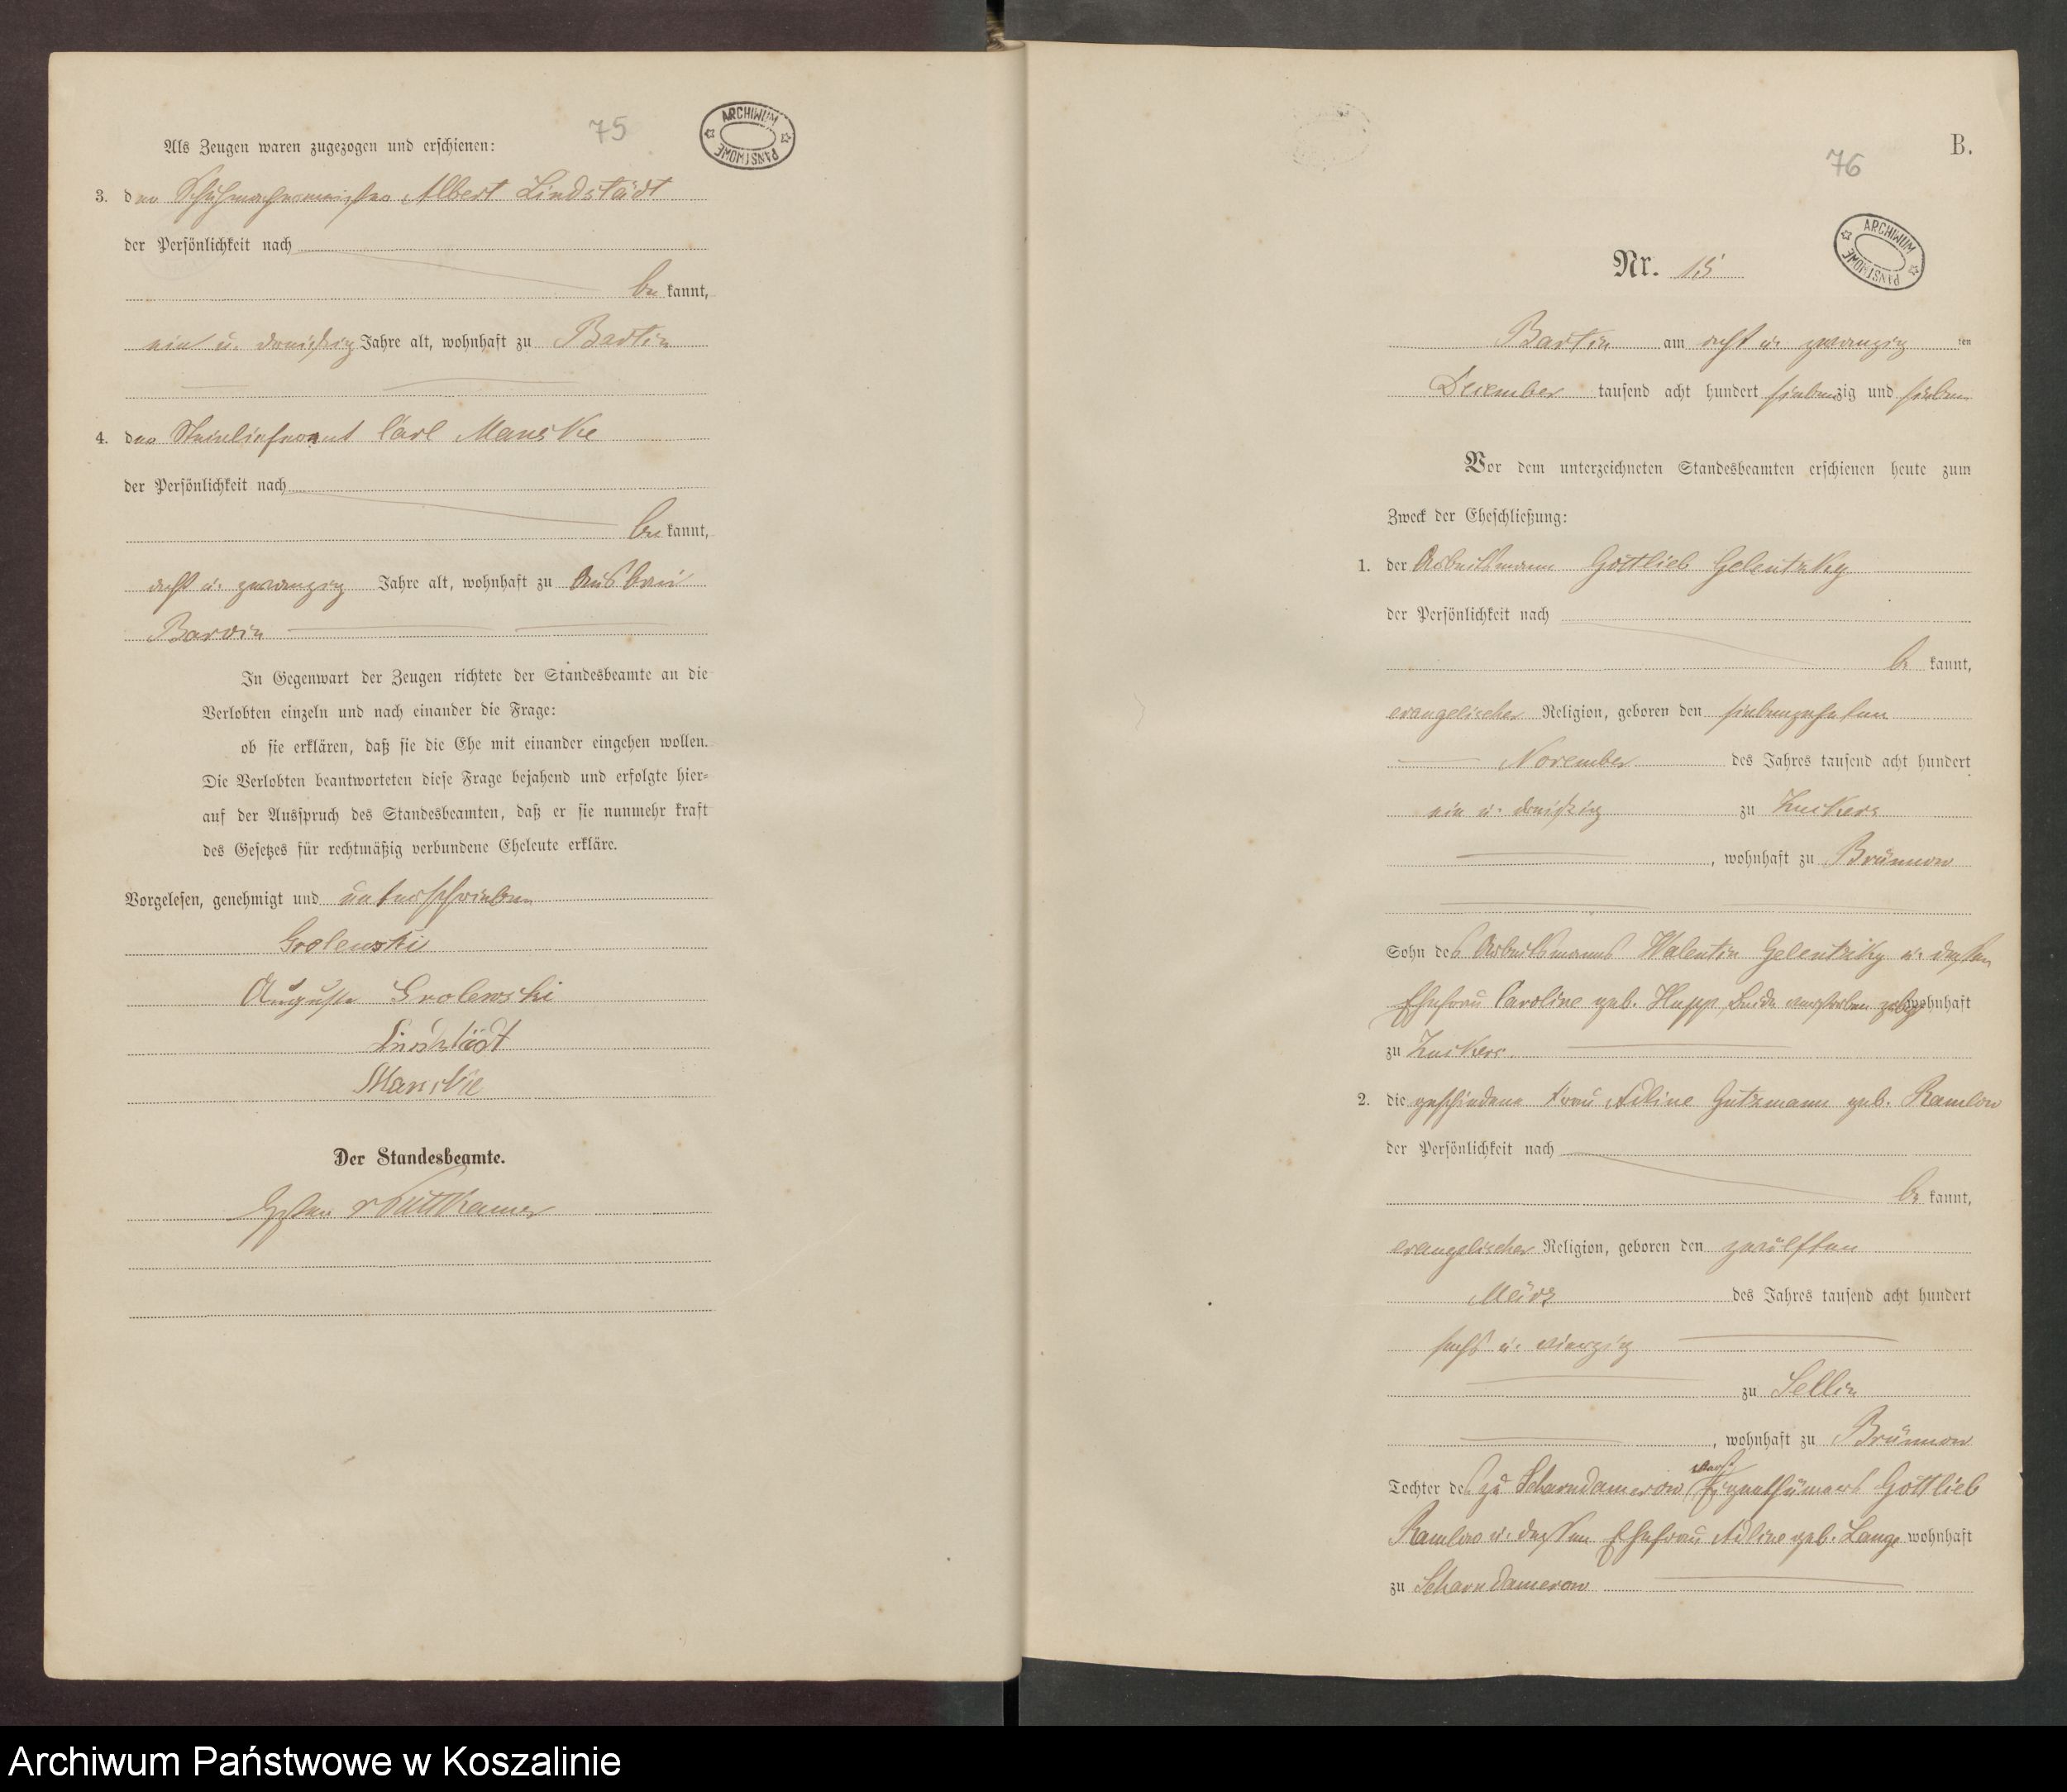 75
ARCHIWUM PAŃSTWOWE
Als Zeugen waren zugezogen und erschienen:
3. der Schuhmachermeister Albert Lindstädt
der Persönlichkeit nach
be kannt,
ein u. dreißig Jahre alt, wohnhaft zu Bartin
4. der Carl Manske
der Persönlichkeit nach
be kannt,
acht u. zwanzig Jahre alt, wohnhaft zu Ausbau
Barvin
In Gegenwart der Zeugen richtete der Standesbeamte an die
Verlobten einzeln und nach einander die Frage:
ob sie erklären, daß sie die Ehe mit einander eingehen wollen.
Die Verlobten beantworteten diese Frage bejahend und erfolgte hier-
auf der Ausspruch des Standesbeamten, daß er sie nunmehr kraft
des Gesetzes für rechtmäßig verbundene Eheleute erkläre.
Vorgelesen, genehmigt und unterschrieben
Grolewski
Auguste Grolewski
Lindstädt
Manske
Der Standesbeamte.
v Puttkamer
B.
76
ARCHIWUM PAŃSTWOWE
Nr. 15
Bartin am acht u. zwanzig ten
December tausend acht hundert siebenzig und sieben
Vor dem unterzeichneten Standesbeamten erschienen heute zum
Zweck der Eheschließung:
1. der Arbeitsmann Gottlieb Gelentzky
der Persönlichkeit nach
be kannt,
evangelischer Religion, geboren den siebenzehnten
November des Jahres tausend acht hundert
ein u. dreißig zu Zuckers
, wohnhaft zu Brünnow
Sohn des Arbeitsmanns Valentin Gelentzky u. dessen
Ehefrau Caroline geb. Hupp, beide verstorben wohnhaft
zu Zuckers.
2. die geschiedene Frau Adline Gutzmann geb. Ramlow
der Persönlichkeit nach
be kannt,
evangelischer Religion, geboren den zwölften
März des Jahres tausend acht hundert
sechs u. vierzig
zu Sellin
, wohnhaft zu Brünnow
Tochter des zu Scharndamerow verst. Eigenthümers Gottlieb
Ramlow u. dessen Ehefrau Adline geb. Lange wohnhaft
zu Scharndamerow
Archiwum Państwowe w Koszalinie